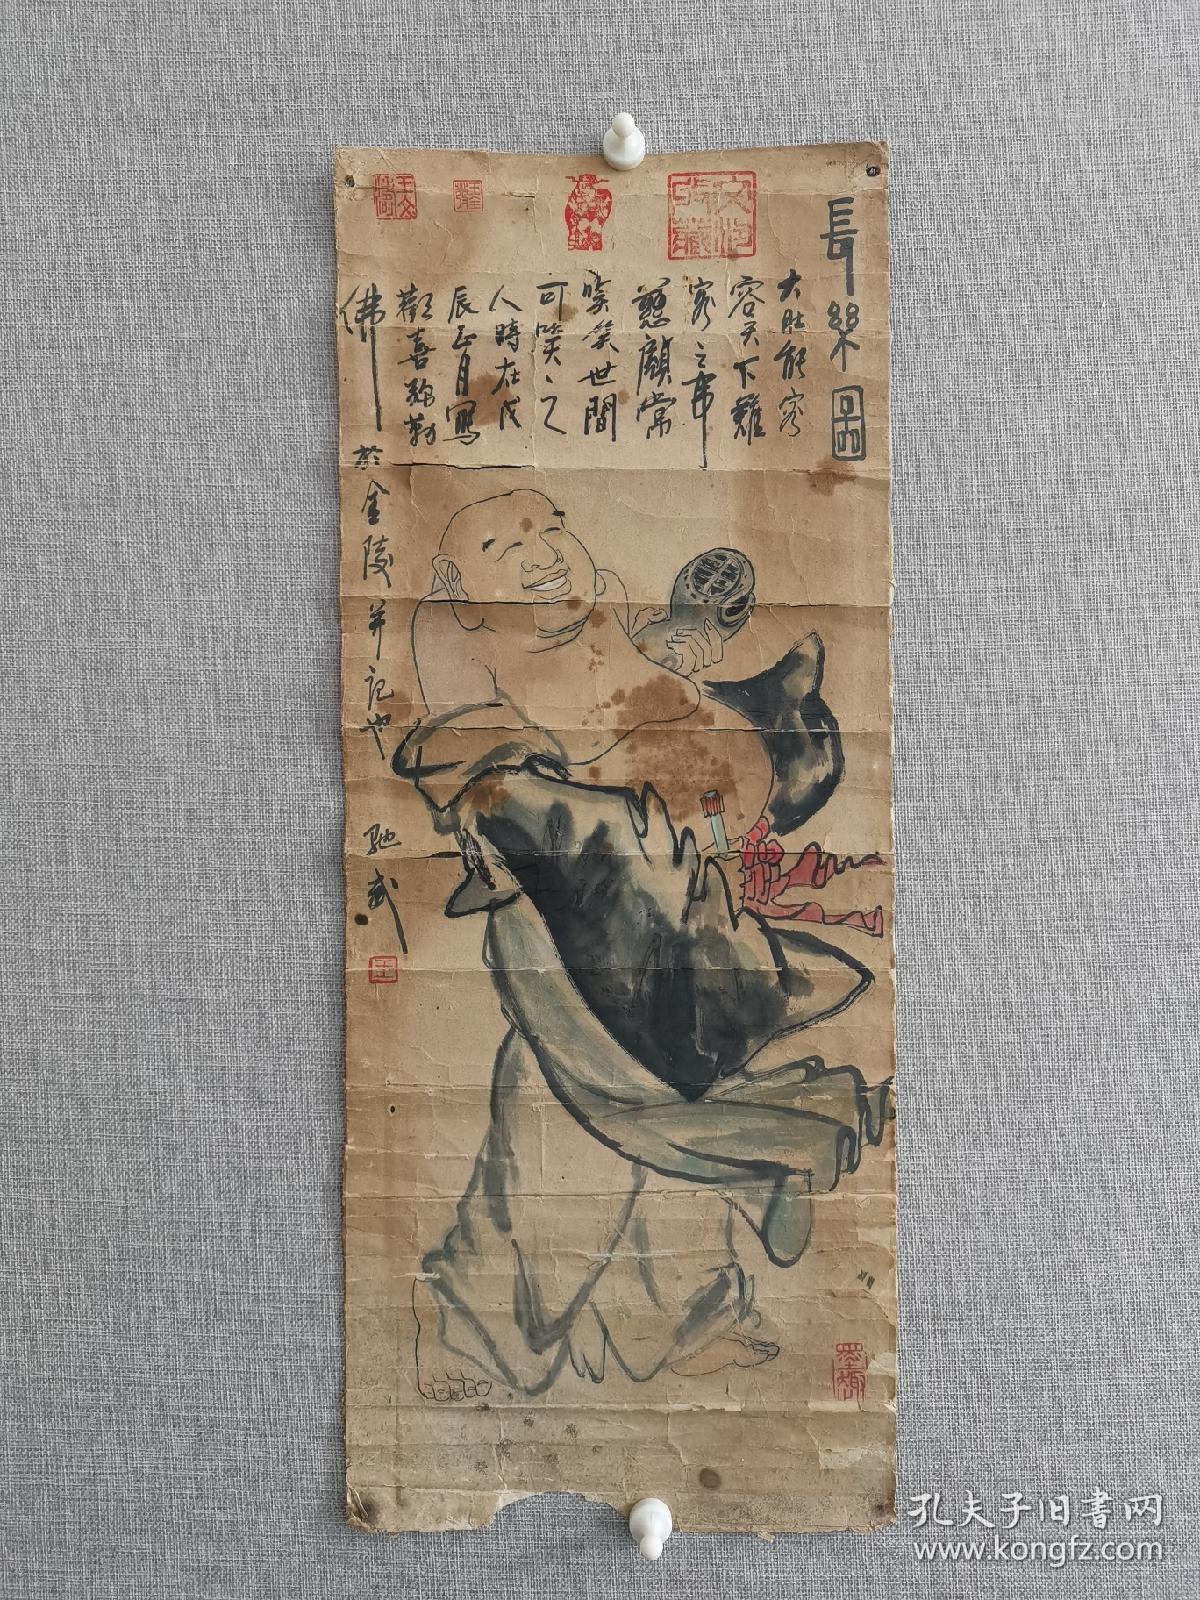 長樂圖
大肚能容
容天下難
容之事
慈顔常
笑笑世間
可笑、之
人時在戊
辰正月寫
歡喜弥勒
佛
於金陵并記也
馳武
文
藏
王文
王
墨趣
孔夫子旧书网
www.kongfz.com